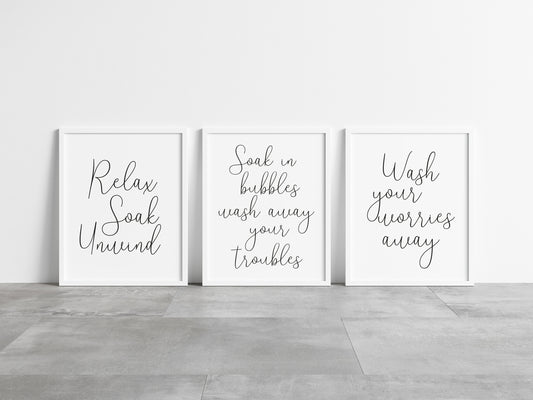 Relax
Soak
Unwind
Soak in
bubbles
wash away
your
troubles
Wash
your
worries
away